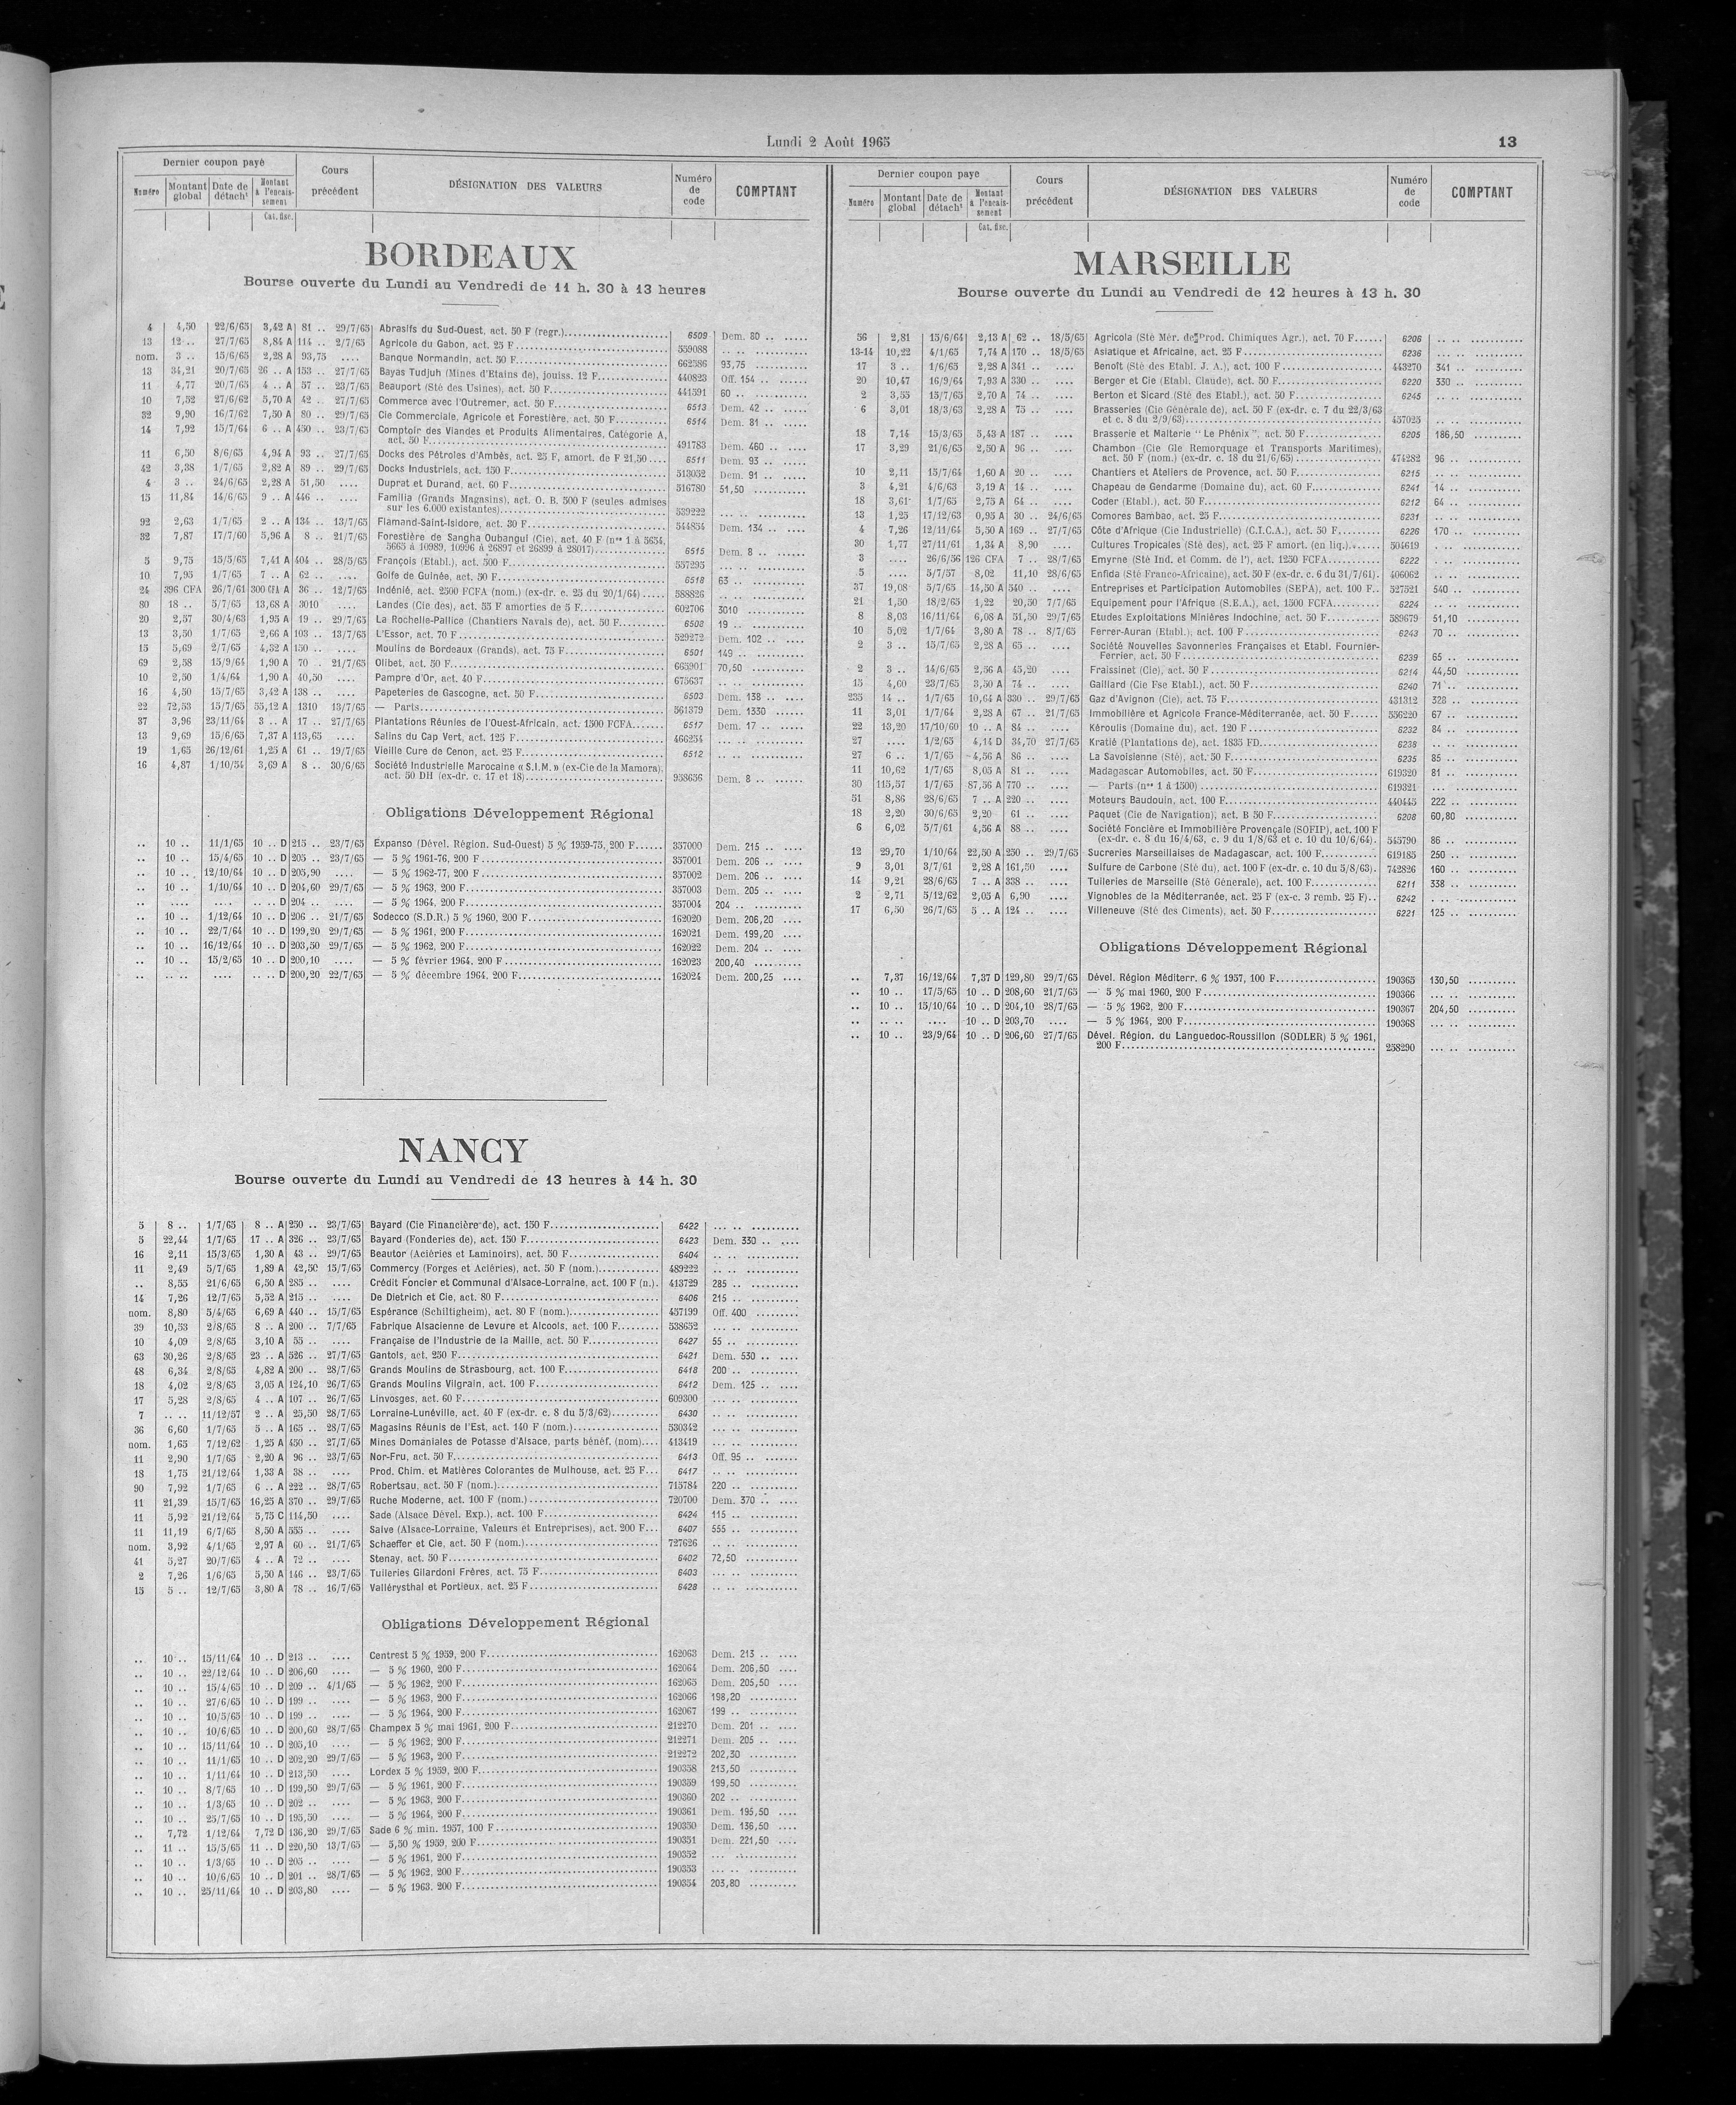 Lundi 2 Août 1965
13
Dernier coupon payé
Cours précédent
DÉSIGNATION DES VALEURS
Numéro de code
COMPTANT
Numéro
Montant global
Date de détacht
Montant à l'encaissement
Cat. fisc.
BORDEAUX
Bourse ouverte du Lundi au Vendredi de 11 h. 30 à 13 heures
4 4,50 22/6/65 3,42 A 81 .. 29/7/65 Abrasifs du Sud-Ouest, act. 50 F (regr.) 6509 Dem. 80 ..
13 12 .. 27/7/65 8,84 A 114 .. 2/7/65 Agricole du Gabon, act. 25 F 559088 .. ..
nom. 3 .. 15/6/65 2,28 A 93,75 .... Banque Normandin, act. 50 F 662586 93,75
13 34,21 20/7/65 26 .. A 153 .. 27/7/65 Bayas Tudjuh (Mines d'Etains de), jouiss. 12 F 440823 Off. 154 ..
11 4,77 20/7/65 4 .. A 57 .. 23/7/65 Beauport (Sté des Usines), act. 50 F 441591 60 ..
10 7,52 27/6/62 5,70 A 42 .. 27/7/65 Commerce avec l'Outremer, act. 50 F 6513 Dem. 42 ..
32 9,90 16/7/62 7,50 A 80 .. 29/7/65 Cie Commerciale, Agricole et Forestière, act. 50 F 6514 Dem. 81 ..
14 7,92 15/7/64 6 .. A 450 .. 23/7/65 Comptoir des Viandes et Produits Alimentaires, Catégorie A,
act. 50 F 491783 Dem. 460 ..
11 6,50 8/6/65 4,94 A 93 .. 27/7/65 Docks des Pétroles d'Ambès, act. 25 F, amort. de F 21,50 6511 Dem. 93 ..
42 3,38 1/7/65 2,82 A 89 .. 29/7/65 Docks Industriels, act. 150 F 513052 Dem. 91 ..
4 3 .. 24/6/65 2,28 A 51,50 .... Duprat et Durand, act. 60 F 516780 51,50
15 11,84 14/6/65 9 .. A 446 .. .... Familia (Grands Magasins), act. O. B. 500 F (seules admises
sur les 6.000 existantes) 539222 ... ..
92 2,63 1/7/65 2 .. A 134 .. 13/7/65 Flamand-Saint-Isidore, act. 30 F 544854 Dem. 134 ..
32 7,87 17/7/60 5,96 A 8 .. 21/7/65 Forestière de Sangha Oubangui (Cie), act. 40 F (nos 1 à 5654,
5665 à 10989, 10996 à 26897 et 26899 à 28017) 6515 Dem. 8 ..
5 9,75 15/5/65 7,41 A 404 .. 28/5/65 François (Etabl.), act. 500 F 557295 ... ..
10 7,95 1/7/65 7 .. A 62 .. .... Golfe de Guinée, act. 50 F 6518 63 ..
24 396 CFA 26/7/61 300 CFA A 36 .. 12/7/65 Indénié, act. 2500 FCFA (nom.) (ex-dr. c. 25 du 20/1/64) 588826 .. ..
80 18 .. 5/7/65 13,68 A 3010 .... Landes (Cie des), act. 55 F amorties de 5 F 602706 3010
20 2,57 30/4/63 1,95 A 19 .. 29/7/65 La Rochelle-Pallice (Chantiers Navals de), act. 50 F 6508 19 ..
13 3,50 1/7/65 2,66 A 103 .. 13/7/65 L'Essor, act. 70 F 529272 Dem. 102 ..
15 5,69 2/7/65 4,32 A 150 .. .... Moulins de Bordeaux (Grands), act. 75 F 6501 149 ..
69 2,58 15/9/64 1,90 A 70 .. 21/7/65 Olibet, act. 50 F 665901 70,50
10 2,50 1/4/64 1,90 A 40,50 .... Pampre d'Or, act. 40 F 675637 .. ..
16 4,50 15/7/65 3,42 A 138 .. .... Papeteries de Gascogne, act. 50 F 6503 Dem. 138 ..
22 72,53 15/7/65 55,12 A 1310 13/7/65 — Parts 561379 Dem. 1330
37 3,96 23/11/64 3 .. A 17 .. 27/7/65 Plantations Réunies de l'Ouest-Africain, act. 1500 FCFA 6517 Dem. 17 ..
13 9,69 15/6/65 7,37 A 113,65 .... Salins du Cap Vert, act. 125 F 466254 ... ..
19 1,65 26/12/61 1,25 A 61 .. 19/7/65 Vieille Cure de Cenon, act. 25 F 6512 .. ..
16 4,87 1/10/54 3,69 A 8 .. 30/6/65 Société Industrielle Marocaine « S.I.M. » (ex-Cie de la Mamora),
act. 50 DH (ex-dr. c. 17 et 18) 958656 Dem. 8 ..
Obligations Développement Régional
.. 10 .. 11/1/65 10 .. D 215 .. 23/7/65 Expanso (Dével. Région. Sud-Ouest) 5 % 1959-75, 200 F 357000 Dem. 215 ..
.. 10 .. 15/4/65 10 .. D 205 .. 23/7/65 — 5 % 1961-76, 200 F 357001 Dem. 206 ..
.. 10 .. 12/10/64 10 .. D 205,90 .... — 5 % 1962-77, 200 F 357002 Dem. 206 ..
.. 10 .. 1/10/64 10 .. D 204,60 29/7/65 — 5 % 1963, 200 F 357003 Dem. 205 ..
.. .... .... .. .. D 204 .. .... — 5 % 1964, 200 F 357004 204 ..
.. 10 .. 1/12/64 10 .. D 206 .. 21/7/65 Sodecco (S.D.R.) 5 % 1960, 200 F 162020 Dem. 206,20
.. 10 .. 22/7/64 10 .. D 199,20 29/7/65 — 5 % 1961, 200 F 162021 Dem. 199,20
.. 10 .. 16/12/64 10 .. D 203,50 29/7/65 — 5 % 1962, 200 F 162022 Dem. 204 ..
.. 10 .. 15/2/65 10 .. D 200,10 .... — 5 % février 1964, 200 F 162023 200,40
.. .. .. .... .. .. D 200,20 22/7/65 — 5 % décembre 1964, 200 F 162024 Dem. 200,25
NANCY
Bourse ouverte du Lundi au Vendredi de 13 heures à 14 h. 30
5 8 .. 1/7/65 8 .. A 250 .. 23/7/65 Bayard (Cie Financière de), act. 150 F 6422 ... ..
5 22,44 1/7/65 17 .. A 326 .. 23/7/65 Bayard (Fonderies de), act. 150 F 6423 Dem. 330 ..
16 2,11 15/3/65 1,30 A 43 .. 29/7/65 Beautor (Aciéries et Laminoirs), act. 50 F 6404 .. ..
11 2,49 5/7/65 1,89 A 42,50 15/7/65 Commercy (Forges et Aciéries), act. 50 F (nom.) 489222 .. ..
.. 8,55 21/6/65 6,50 A 285 .. .... Crédit Foncier et Communal d'Alsace-Lorraine, act. 100 F (n.) 413729 285 ..
14 7,26 12/7/65 5,52 A 215 .. .... De Dietrich et Cie, act. 80 F 6406 215 ..
nom. 8,80 5/4/65 6,69 A 440 .. 15/7/65 Espérance (Schiltigheim), act. 80 F (nom.) 457199 Off. 400
39 10,53 2/8/65 8 .. A 200 .. 7/7/65 Fabrique Alsacienne de Levure et Alcools, act. 100 F 538652 ... ..
10 4,09 2/8/65 3,10 A 55 .. .... Française de l'Industrie de la Maille, act. 50 F 6427 55 ..
63 30,26 2/8/65 23 .. A 526 .. 27/7/65 Gantois, act. 250 F 6421 Dem. 530 ..
48 6,34 2/8/65 4,82 A 200 .. 28/7/65 Grands Moulins de Strasbourg, act. 100 F 6418 200 ..
18 4,02 2/8/65 3,05 A 124,10 26/7/65 Grands Moulins Vilgrain, act. 100 F 6412 Dem. 125 ..
17 5,28 2/8/65 4 .. A 107 .. 26/7/65 Linvosges, act. 60 F 609300 ... ..
7 .. .. 11/12/57 2 .. A 25,50 28/7/65 Lorraine-Lunéville, act. 40 F (ex-dr. c. 8 du 5/3/62) 6430 .. ..
36 6,60 1/7/65 5 .. A 165 .. 28/7/65 Magasins Réunis de l'Est, act. 140 F (nom.) 530342 ... ..
nom. 1,65 7/12/62 1,25 A 450 .. 27/7/65 Mines Domaniales de Potasse d'Alsace, parts bénéf. (nom) 413419 ... ..
11 2,90 1/7/65 2,20 A 96 .. 23/7/65 Nor-Fru, act. 50 F 6413 Off. 95 ..
18 1,75 21/12/64 1,33 A 38 .. .... Prod. Chim. et Matières Colorantes de Mulhouse, act. 25 F 6417 .. ..
90 7,92 1/7/65 6 .. A 222 .. 28/7/65 Robertsau, act. 50 F (nom.) 715784 220 ..
11 21,39 15/7/65 16,25 A 370 .. 29/7/65 Ruche Moderne, act. 100 F (nom.) 720700 Dem. 370 ..
11 5,92 21/12/64 5,75 C 114,50 .... Sade (Alsace Dével. Exp.), act. 100 F 6424 115 ..
11 11,19 6/7/65 8,50 A 555 .. .... Salve (Alsace-Lorraine, Valeurs et Entreprises), act. 200 F 6407 555 ..
nom. 3,92 4/1/65 2,97 A 60 .. 21/7/65 Schaeffer et Cie, act. 50 F (nom.) 727626 .. ..
41 5,27 20/7/65 4 .. A 72 .. .... Stenay, act. 50 F 6402 72,50
2 7,26 1/6/65 5,50 A 146 .. 23/7/65 Tuileries Gilardoni Frères, act. 75 F 6403 ... ..
15 5 .. 12/7/65 3,80 A 78 .. 16/7/65 Vallérysthal et Portieux, act. 25 F 6428 .. ..
Obligations Développement Régional
.. 10 .. 15/11/64 10 .. D 213 .. .... Centrest 5 % 1959, 200 F 162063 Dem. 213 ..
.. 10 .. 22/12/64 10 .. D 206,60 .... — 5 % 1960, 200 F 162064 Dem. 206,50
.. 10 .. 15/4/65 10 .. D 209 .. 4/1/65 — 5 % 1962, 200 F 162065 Dem. 205,50
.. 10 .. 27/6/65 10 .. D 199 .. .... — 5 % 1963, 200 F 162066 198,20
.. 10 .. 10/5/65 10 .. D 199 .. .... — 5 % 1964, 200 F 162067 199 ..
.. 10 .. 10/6/65 10 .. D 200,60 28/7/65 Champex 5 % mai 1961, 200 F 212270 Dem. 201 ..
.. 10 .. 15/11/64 10 .. D 205,10 .... — 5 % 1962, 200 F 212271 Dem. 205 ..
.. 10 .. 11/1/65 10 .. D 202,20 29/7/65 — 5 % 1963, 200 F 212272 202,30
.. 10 .. 1/11/64 10 .. D 213,50 .... Lordex 5 % 1959, 200 F 190358 213,50
.. 10 .. 8/7/65 10 .. D 199,50 29/7/65 — 5 % 1961, 200 F 190359 199,50
.. 10 .. 1/3/65 10 .. D 202 .. .... — 5 % 1963, 200 F 190360 202 ..
.. 10 .. 25/7/65 10 .. D 195,50 .... — 5 % 1964, 200 F 190361 Dem. 195,50
.. 7,72 1/12/64 7,72 D 136,20 29/7/65 Sade 6 % min. 1957, 100 F 190350 Dem. 136,50
.. 11 .. 15/5/65 11 .. D 220,50 13/7/65 — 5,50 % 1959, 200 F 190351 Dem. 221,50
.. 10 .. 1/3/65 10 .. D 205 .. .... — 5 % 1961, 200 F 190352 ... ..
.. 10 .. 10/6/65 10 .. D 201 .. 28/7/65 — 5 % 1962, 200 F 190353 ... ..
.. 10 .. 25/11/64 10 .. D 203,80 .... — 5 % 1963, 200 F 190354 203,80
Dernier coupon payé
Cours précédent
DÉSIGNATION DES VALEURS
Numéro de code
COMPTANT
Numéro
Montant global
Date de détacht
Montant à l'encaissement
Cat. fisc.
MARSEILLE
Bourse ouverte du Lundi au Vendredi de 12 heures à 13 h. 30
56 2,81 15/6/64 2,13 A 62 .. 18/5/65 Agricola (Sté Mér. de Prod. Chimiques Agr.), act. 70 F 6206 .. ..
13-14 10,22 4/1/65 7,74 A 170 .. 18/5/65 Asiatique et Africaine, act. 25 F 6236 ... ..
17 3 .. 1/6/65 2,28 A 341 .. .... Benoît (Sté des Etabl. J. A.), act. 100 F 443270 341 ..
20 10,47 16/9/64 7,93 A 330 .. .... Berger et Cie (Etabl. Claude), act. 50 F 6220 330 ..
2 3,55 15/7/65 2,70 A 74 .. .... Berton et Sicard (Sté des Etabl.), act. 50 F 6245 .. ..
6 3,01 18/3/63 2,28 A 75 .. .... Brasseries (Cie Générale de), act. 50 F (ex-dr. c. 7 du 22/3/63
et c. 8 du 2/9/63) 457025 .. ..
18 7,14 15/3/65 5,43 A 187 .. .... Brasserie et Malterie " Le Phénix ", act. 50 F 6205 186,50
17 3,29 21/6/65 2,50 A 96 .. .... Chambon (Cie Gle Remorquage et Transports Maritimes),
act. 50 F (nom.) (ex-dr. c. 18 du 21/6/65) 474282 96 ..
10 2,11 15/7/64 1,60 A 20 .. .... Chantiers et Ateliers de Provence, act. 50 F 6215 .. ..
3 4,21 4/6/63 3,19 A 14 .. .... Chapeau de Gendarme (Domaine du), act. 60 F 6241 14 ..
18 3,61 1/7/65 2,75 A 64 .. .... Coder (Etabl.), act. 50 F 6212 64 ..
13 1,25 17/12/63 0,95 A 30 .. 24/6/65 Comores Bambao, act. 25 F 6231 .. ..
4 7,26 12/11/64 5,50 A 169 .. 27/7/65 Côte d'Afrique (Cie Industrielle) (C.I.C.A.), act. 50 F 6226 170 ..
30 1,77 27/11/61 1,34 A 8,90 .... Cultures Tropicales (Sté des), act. 25 F amort. (en liq.) 504619 . ..
3 .... 26/6/56 126 CFA 7 .. 28/7/65 Emyrne (Sté Ind. et Comm. de l'), act. 1250 FCFA 6222 . ..
5 .... 5/7/57 8,02 11,10 28/6/65 Enfida (Sté Franco-Africaine), act. 50 F (ex-dr. c. 6 du 31/7/61) 406062 .. ..
37 19,08 5/7/65 14,50 A 540 .. .... Entreprises et Participation Automobiles (SEPA), act. 100 F 527521 540 ..
21 1,50 18/2/65 1,22 20,50 7/7/65 Equipement pour l'Afrique (S.E.A.), act. 1500 FCFA 6224 .. ..
8 8,03 16/11/64 6,08 A 51,50 29/7/65 Etudes Exploitations Minières Indochine, act. 50 F 589679 51,10
10 5,02 1/7/64 3,80 A 78 .. 8/7/65 Ferrer-Auran (Etabl.), act. 100 F 6243 70 ..
2 3 .. 15/7/65 2,28 A 65 .. .... Société Nouvelles Savonneries Françaises et Etabl. Fournier-
Ferrier, act. 50 F 6239 65 ..
2 3 .. 14/6/65 2,56 A 45,20 .... Fraissinet (Cie), act. 50 F 6214 44,50
15 4,60 23/7/65 3,50 A 74 .. .... Gaillard (Cie Fse Etabl.), act. 50 F 6240 71 ..
235 14 .. 1/7/65 10,64 A 330 .. 29/7/65 Gaz d'Avignon (Cie), act. 75 F 431312 328 ..
11 3,01 1/7/64 2,28 A 67 .. 21/7/65 Immobilière et Agricole France-Méditerranée, act. 50 F 556220 67 ..
22 13,20 17/10/60 10 .. A 84 .. .... Kéroulis (Domaine du), act. 120 F 6232 84 ..
27 .... 1/2/65 4,14 D 34,70 27/7/65 Kratié (Plantations de), act. 1835 FD 6238 .. ..
27 6 .. 1/7/65 4,56 A 86 .. .... La Savoisienne (Sté), act. 50 F 6235 85 ..
11 10,62 1/7/65 8,05 A 81 .. .... Madagascar Automobiles, act. 50 F 619320 81 ..
30 115,57 1/7/65 87,56 A 770 .. .... — Parts (nos 1 à 1500) 619321 ...
51 8,86 28/6/65 7 .. A 220 .. .... Moteurs Baudouin, act. 100 F 440445 222 ..
18 2,20 30/6/65 2,20 61 .. .... Paquet (Cie de Navigation), act. B 50 F 6208 60,80
6 6,02 5/7/61 4,56 A 88 .. .... Société Foncière et Immobilière Provençale (SOFIP), act. 100 F
(ex-dr. c. 8 du 16/4/63, c. 9 du 1/8/63 et c. 10 du 10/6/64) 545790 86 ..
12 29,70 1/10/64 22,50 A 250 .. 29/7/65 Sucreries Marseillaises de Madagascar, act. 100 F 619185 250 ..
9 3,01 3/7/61 2,28 A 161,50 .... Sulfure de Carbone (Sté du), act. 100 F (ex-dr. c. 10 du 5/8/63) 742826 160 ..
14 9,21 28/6/65 7 .. A 338 .. .... Tuileries de Marseille (Sté Génerale), act. 100 F 6211 338 ..
2 2,71 5/12/62 2,05 A 6,90 .... Vignobles de la Méditerranée, act. 25 F (ex-c. 3 remb. 25 F) 6242 . ..
17 6,50 26/7/65 5 .. A 124 .. .... Villeneuve (Sté des Ciments), act. 50 F 6221 125 ..
Obligations Développement Régional
.. 7,37 16/12/64 7,37 D 129,80 29/7/65 Dével. Région Méditerr. 6 % 1957, 100 F 190365 130,50
.. 10 .. 17/5/65 10 .. D 208,60 21/7/65 — 5 % mai 1960, 200 F 190366 ... ..
.. 10 .. 15/10/64 10 .. D 204,10 28/7/65 — 5 % 1962, 200 F 190367 204,50
.. .. .. .... 10 .. D 203,70 .... — 5 % 1964, 200 F 190368 ... ..
.. 10 .. 23/9/64 10 .. D 206,60 27/7/65 Dével. Région. du Languedoc-Roussillon (SODLER) 5 % 1961,
200 F 258290 ... ..